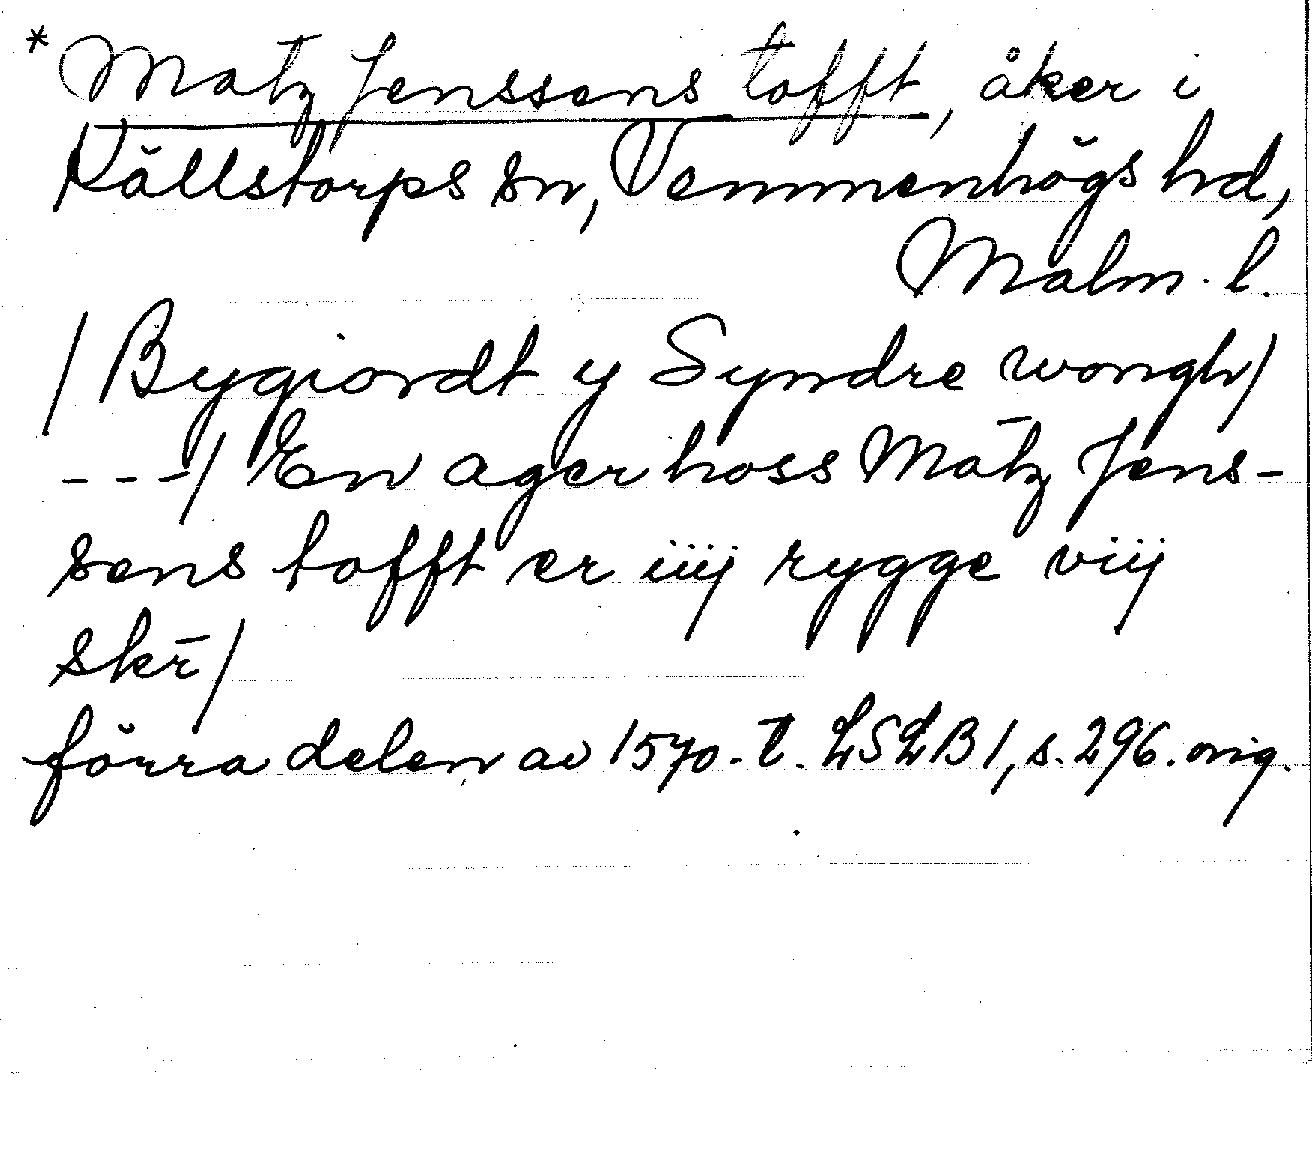 * Mat̄z Jenssens tofft, åker i
Källstorps sn, Vemmenhögs hd,
Malm. l.
/ Bygiordt y Syndre wongh/
---/ En ager hoss Mat̄z Jens-
sens tofft er iiij rygge viij
skr̄/
förra delen av 1570-t. LSLB 1, s. 296. orig.